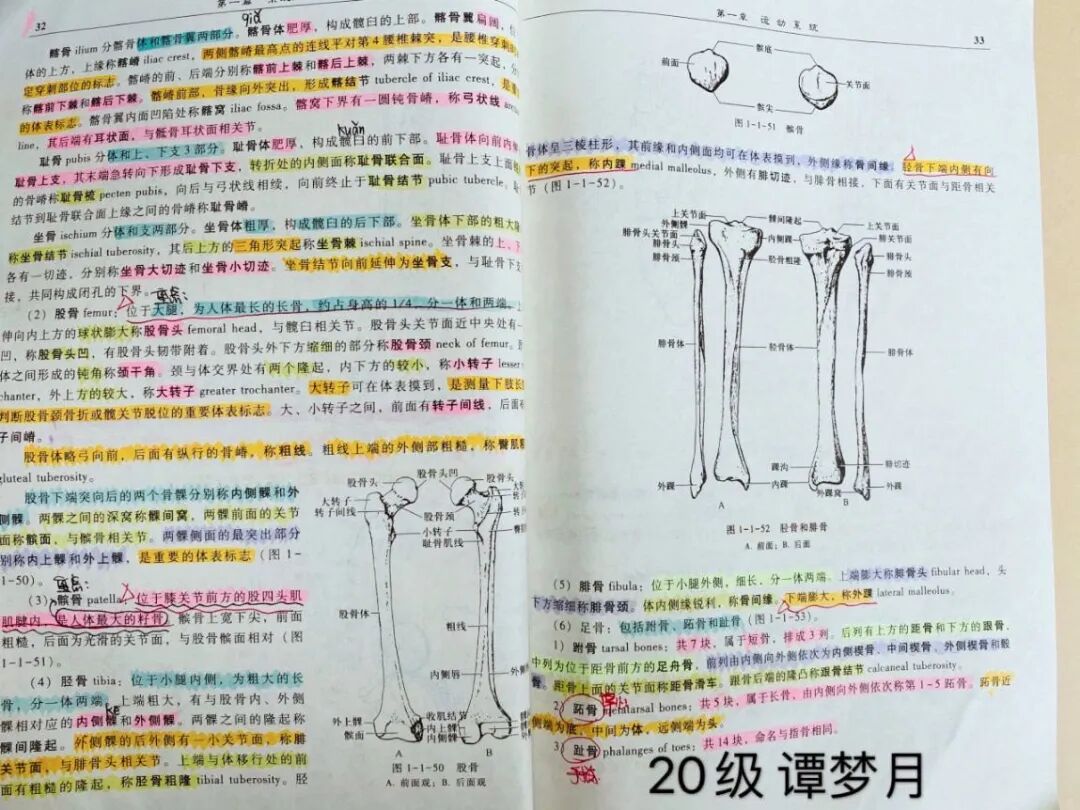 32
第一章
qià
髂骨 ilium 分髂骨体和髂骨翼两部分。髂骨体肥厚,构成髋臼的上部。髂骨翼扁阔,位
体的上方,上缘称髂嵴 iliac crest,两侧髂嵴最高点的连线平对第 4 腰椎棘突,是腰椎穿刺时
定穿刺部位的标志。髂嵴的前、后端分别称髂前上棘和髂后上棘,两棘下方各有一突起,分
称髂前下棘和髂后下棘。髂嵴前部,骨缘向外突出,形成髂结节 tubercle of iliac crest,是重
的体表标志。髂骨翼内面凹陷处称髂窝 iliac fossa。髂窝下界有一圆钝骨嵴,称弓状线
line,其后端有耳状面,与骶骨耳状面相关节。
kuān
耻骨 pubis 分体和上、下支 3 部分。耻骨体肥厚,构成髋臼的前下部。耻骨体向前内
耻骨上支,其末端急转向下形成耻骨下支,转折处的内侧面称耻骨联合面。耻骨上支上面
的骨嵴称耻骨梳 pecten pubis,向后与弓状线相续,向前终止于耻骨结节 pubic tubercle,
结节到耻骨联合面上缘之间的骨嵴称耻骨嵴。
坐骨 ischium 分体和支两部分。坐骨体粗厚,构成髋臼的后下部。坐骨体下部的粗大
称坐骨结节 ischial tuberosity,其后上方的三角形突起称坐骨棘 ischial spine。坐骨棘的上、下
各有一切迹,分别称坐骨大切迹和坐骨小切迹。坐骨结节向前延伸为坐骨支,与耻骨下支
接,共同构成闭孔的下界。
重点:
(2) 股骨 femur:位于大腿,为人体最长的长骨,约占身高的 1/4,分一体和两端。
伸向内上方的球状膨大称股骨头 femoral head,与髋臼相关节。股骨头关节面近中央处有一
凹,称股骨头凹,有股骨头韧带附着。股骨头外下方缩细的部分称股骨颈 neck of femur。
体之间形成的钝角称颈干角。颈与体交界处有两个隆起,内下方的较小,称小转子 lesser
chanter,外上方的较大,称大转子 greater trochanter。大转子可在体表摸到,是测量下肢长
判断股骨颈骨折或髋关节脱位的重要体表标志。大、小转子之间,前面有转子间线,后面有
子间嵴。
股骨体略弓向前,后面有纵行的骨嵴,称粗线。粗线上端的外侧部粗糙,称臀肌粗
gluteal tuberosity。
股骨下端突向后的两个骨髁分别称内侧髁和外
侧髁。两髁之间的深窝称髁间窝,两髁前面的关节
面称髌面,与髌骨相关节。两髁侧面的最突出部分
别称内上髁和外上髁,是重要的体表标志(图 1-
1-50)。
重点:
(3) 髌骨 patella:位于膝关节前方的股四头肌
肌腱内,是人体最大的籽骨。髌骨上宽下尖,前面
粗糙,后面为光滑的关节面,与股骨髌面相对(图
1-1-51)。
(4) 胫骨 tibia:位于小腿内侧,为粗大的长
骨,分一体两端。上端粗大,有与股骨内、外侧
kē
髁相对应的内侧髁和外侧髁。两髁之间的隆起称
髁间隆起。外侧髁的后外侧有一小关节面,称腓
关节面,与腓骨头相关节。上端与体移行处的前
面有粗糙的隆起,称胫骨粗隆 tibial tuberosity。胫
股骨头凹
股骨头
大转子
转子间线
股骨颈
小转子
耻骨肌线
股骨体
粗线
内侧唇
外侧
外上髁
髌面
收肌结节
内上髁
内侧髁
A
B
图 1-1-50 股骨
A. 前面观;B. 后面观
第一章 运动系统
33
髌底
前面
关节面
髌尖
图 1-1-51 髌骨
骨体呈三棱柱形,其前缘和内侧面均可在体表摸到,外侧缘称骨间缘。胫骨下端内侧有向
下的突起,称内踝 medial malleolus,外侧有腓切迹,与腓骨相接,下面有关节面与距骨相关
节(图 1-1-52)。
上关节面
外侧髁
腓骨头关节面
腓骨头
腓骨颈
髁间隆起
内侧髁
胫骨粗隆
上关节面
腓关节面
腓骨头
腓骨颈
腓骨体
胫骨体
腓骨体
踝沟
内踝
腓切迹
外踝
外踝窝
外踝
A
B
图 1-1-52 胫骨和腓骨
A. 前面;B. 后面
(5) 腓骨 fibula:位于小腿外侧,细长,分一体两端。上端膨大称腓骨头 fibular head,头
下方缩细称腓骨颈。体内侧缘锐利,称骨间缘。下端膨大,称外踝 lateral malleolus。
(6) 足骨:包括跗骨、跖骨和趾骨(图 1-1-53)。
1) 跗骨 tarsal bones:共 7 块,属于短骨,排成 3 列。后列有上方的距骨和下方的跟骨,
中列为位于距骨前方的足舟骨,前列由内侧向外侧依次为内侧楔骨、中间楔骨、外侧楔骨和骰
骨。距骨上面的关节面称距骨滑车。跟骨后端的隆凸称跟骨结节 calcaneal tuberosity。
2) 跖骨 metatarsal bones:共 5 块,属于长骨,由内侧向外侧依次称第 1-5 跖骨。跖骨近
侧端为底,中间为体,远侧端为头。
3) 趾骨 phalanges of toes:共 14 块,命名与指骨相同。
20级 谭梦月